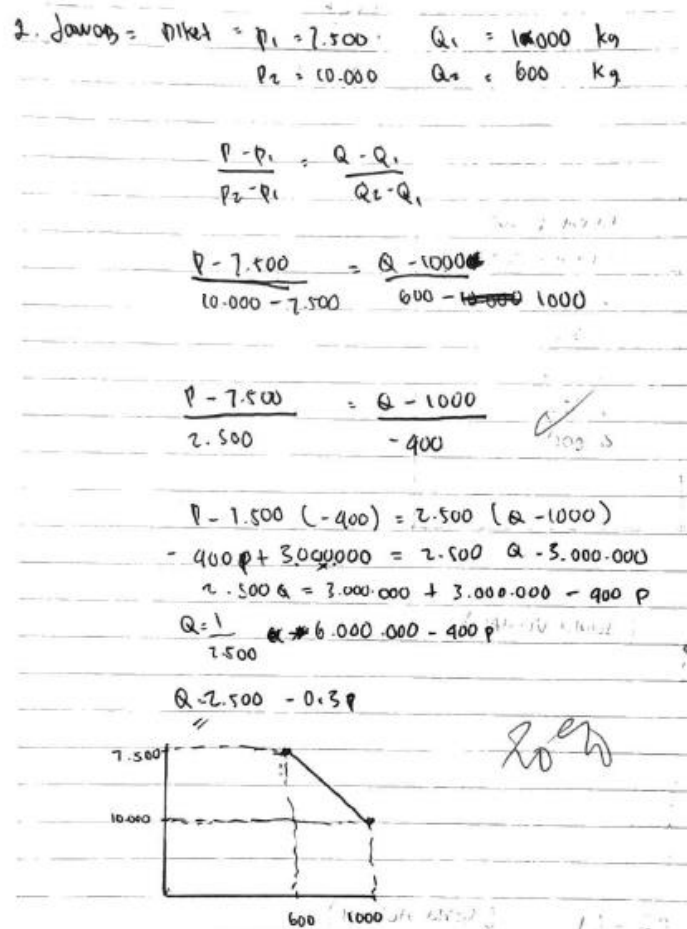 2. Jawab = Diket = P₁ = 7.500 Q₁ = 1000 kg
P₂ = 10.000 Q₂ = 600 kg
P - P₁ = Q - Q₁
P₂ - P₁ Q₂ - Q₁
P - 7.500 = Q - 1000
10.000 - 7.500 600 - 10.000 1000
P - 7.500 = Q - 1000
2.500 -400
P - 7.500 (-400) = 2.500 (Q - 1000)
- 400 P + 3.000.000 = 2.500 Q - 3.000.000
2.500 Q = 3.000.000 + 3.000.000 - 400 P
Q = 1 6.000.000 - 400 P
2.500
Q = 2.500 - 0.3 P
7.500
10.000
600 1000